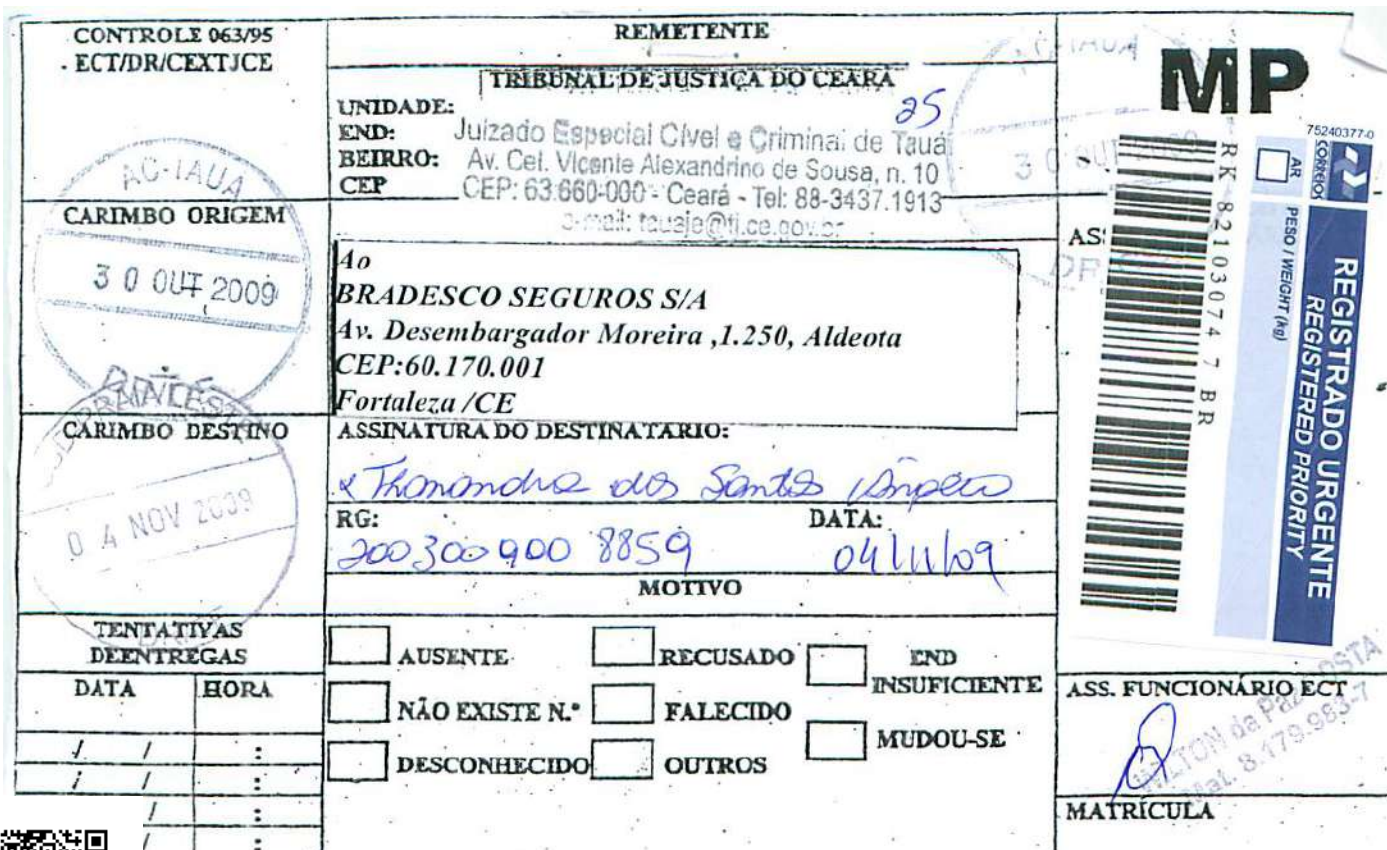 CONTROLE 063/95
ECT/DR/CEXTJCE
AC-TAUA
CARIMBO ORIGEM
30 OUT 2009
CARIMBO DESTINO
04 NOV 2009
TENTATIVAS
DEENTREGAS
DATA HORA
/ / :
/ / :
/ :
/ :
REMETENTE
TRIBUNAL DE JUSTIÇA DO CEARÁ
25
UNIDADE:
END: Juizado Especial Cível e Criminal de Tauá
BEIRRO: Av. Cel. Vicente Alexandrino de Sousa, n. 10
CEP CEP: 63.660-000 - Ceará - Tel: 88-3437.1913
e-mail: tauaje@tj.ce.gov.br
Ao
BRADESCO SEGUROS S/A
Av. Desembargador Moreira ,1.250, Aldeota
CEP:60.170.001
Fortaleza /CE
ASSINATURA DO DESTINATARIO:
dos Santos
RG: DATA:
200300900 8859 04/11/09
MOTIVO
AUSENTE RECUSADO END INSUFICIENTE
NÃO EXISTE N.º FALECIDO MUDOU-SE
DESCONHECIDO OUTROS
30 OUT 2009
MP
75240377-0
CORREIOS
AR
PESO / WEIGHT (kg)
REGISTRADO URGENTE
REGISTERED PRIORITY
RK 82103074 7 BR
ASS. FUNCIONÁRIO ECT
da Paz COSTA
Mat. 8.179.983-7
MATRÍCULA